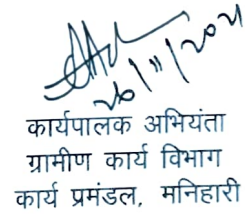 26/11/2021
कार्यपालक अभियंता
ग्रामीण कार्य विभाग
कार्य प्रमंडल, मनिहारी